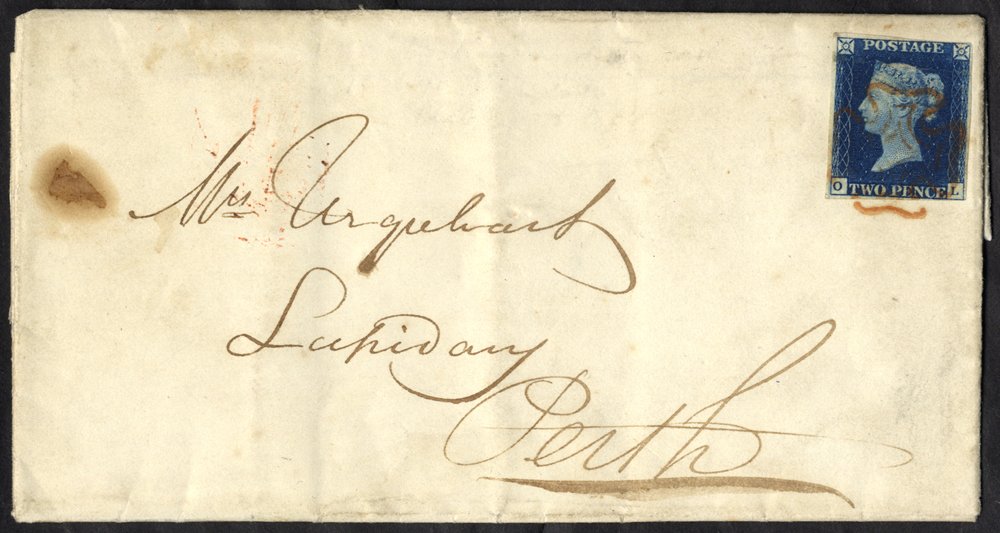 POSTAGE
TWO PENCE
O L
Mrs Urquhart
Lapidary
Perth